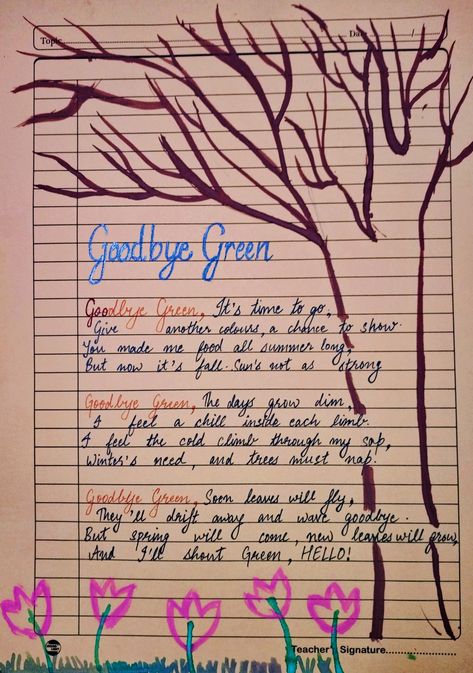 Topic
Date / /
Goodbye Green
Goodbye Green, It's time to go,
Give another colours, a chance to show.
You made me food all summer long,
But now it's fall. Sun's not as strong
Goodbye Green, The days grow dim,
I feel a chill inside each limb.
I feel the cold climb through my sap,
Winter's need, and trees must nap!
Goodbye Green, Soon leaves will fly,
They'll drift away and wave goodbye.
But spring will come, new leaves will grow,
And I'll shout Green, HELLO!
Teacher's Signature